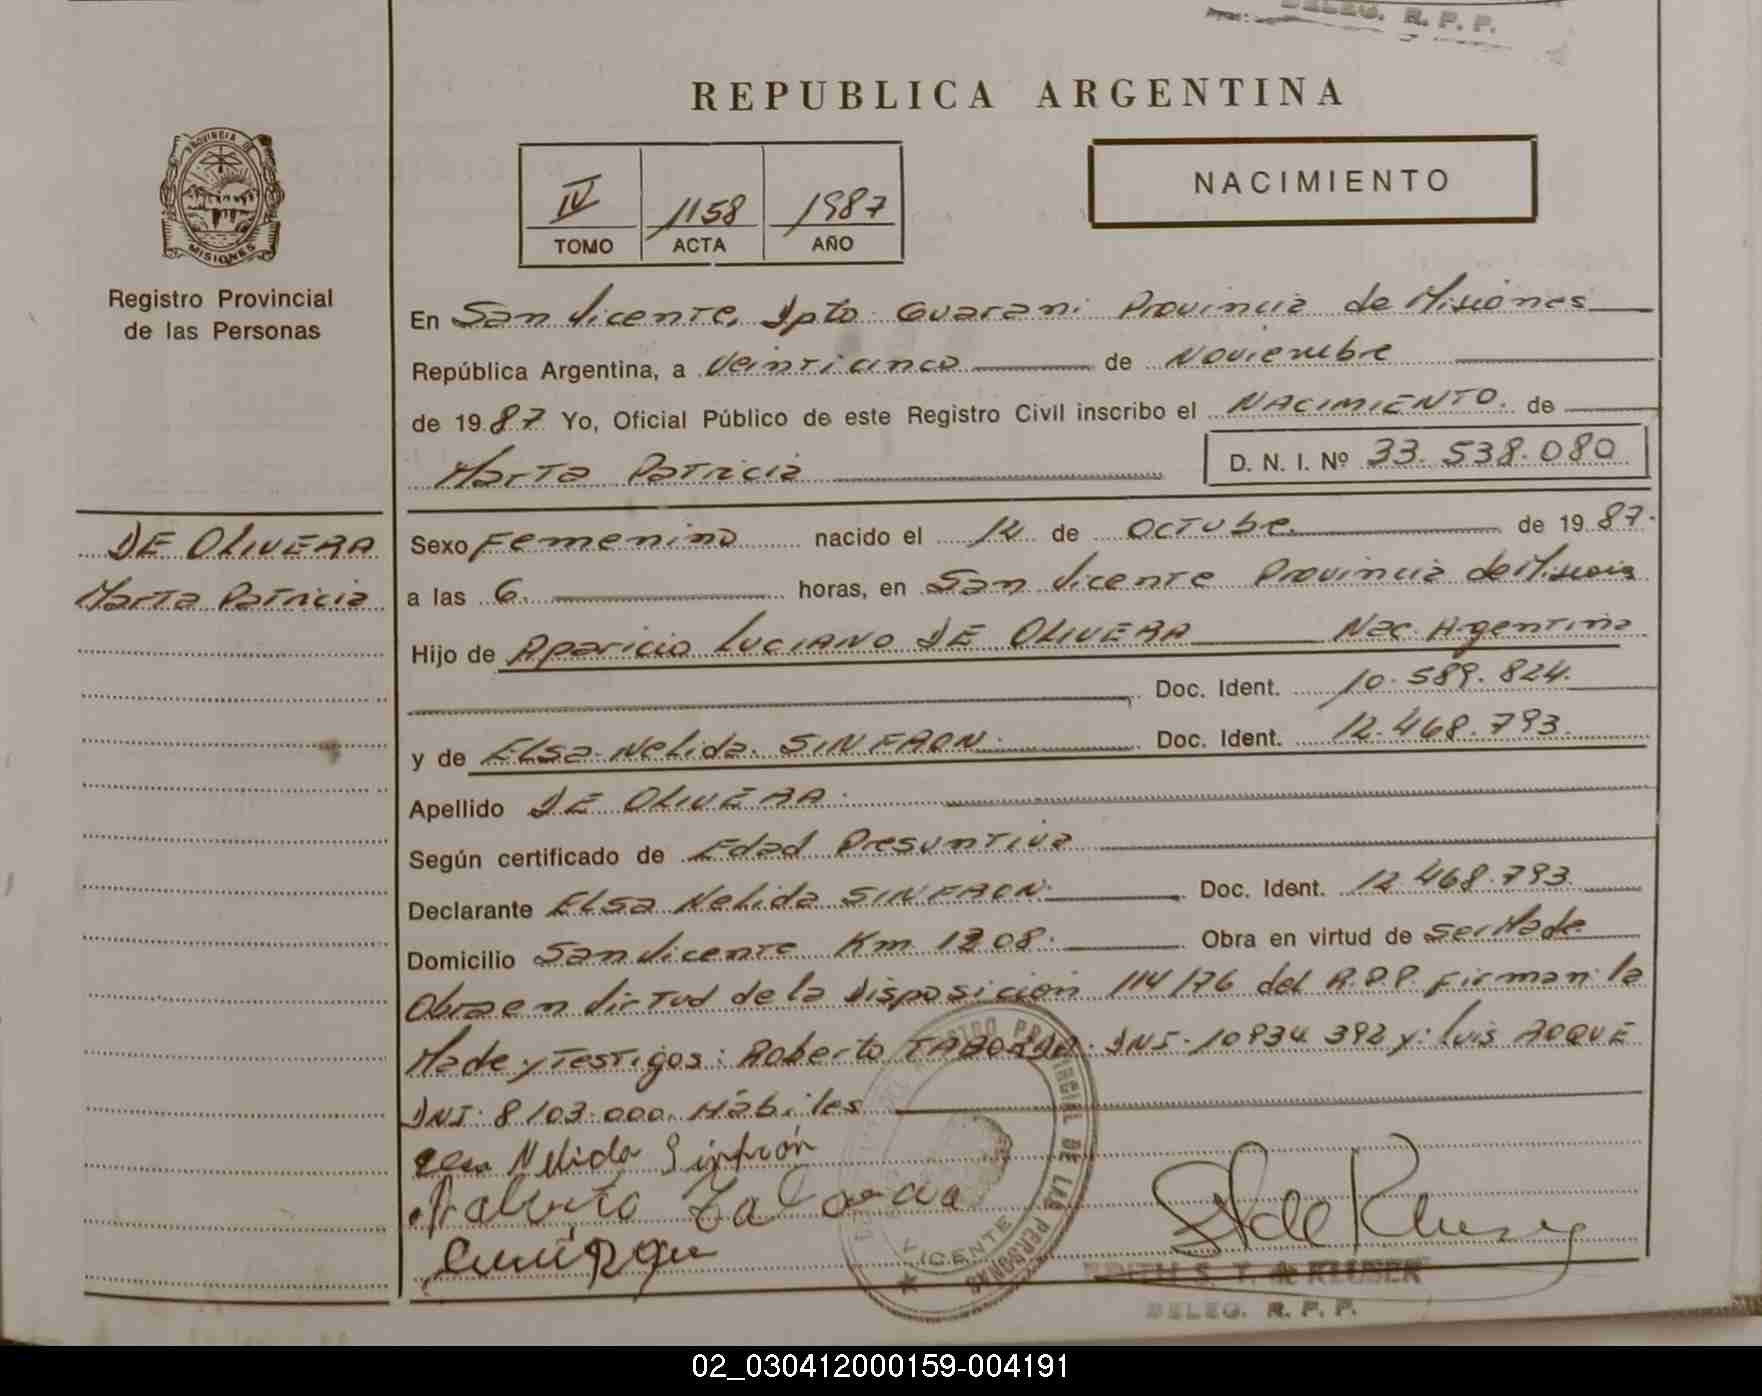 DELEG. R. P. P.
REPUBLICA ARGENTINA
PROVINCIA DE
MISIONES
Registro Provincial
de las Personas
IV 1158 1987
TOMO ACTA AÑO
NACIMIENTO
En San Vicente, Dpto Guarani Provincia de Misiones
República Argentina, a Veinticinco de Noviembre
de 1987 Yo, Oficial Público de este Registro Civil inscribo el NACIMIENTO. de
Marta Patricia D. N. I. Nº 33.538.080
DE OLIVERA
Marta Patricia
Sexo Femenino nacido el 12 de Octubre de 1987.
a las 6. horas, en San Vicente Provincia de Misiones
Hijo de Aparicio LUCIANO DE OLIVERA Nac. Argentina
Doc. Ident. 10.589.824.
y de Elsa Nelida. SINFRON. Doc. Ident. 12.468.793.
Apellido DE OLIVERA.
Según certificado de Edad Presuntiva
Declarante Elsa Nelida SINFRON. Doc. Ident. 12.468.793.
Domicilio San Vicente Km. 1208. Obra en virtud de ser Made
Obra en Virtud de la Disposición 114/76 del R.P.P. Firman: la
Made y Testigos: Roberto TABORDA. DNI. 10934392 y: Luis ROQUE
DNI: 8103.000. Hábiles
Nelida Sinfrón
Roberto Taborda
REGISTRO PROVINCIAL DE LAS PERSONAS
VICENTE
EDITH S. T. de KLUSER
DELEG. R. P. P.
02_030412000159-004191